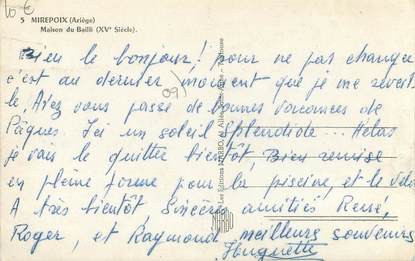 10 €
5 MIREPOIX (Ariège)
Maison du Bailli (XVe Siècle).
(09)
Bien le bonjour! pour ne pas changer
c'est au dernier moment que je me réveille
le, Avez vous passé de bonnes vacances de
Pâques. Ici un soleil splendide... Hélas
je vais le quitter bientôt, Bien remise
en pleine forme pour la piscine, et le vélo
A très bientôt, Sincères amitiés René,
Roger, et Raymond meilleurs souvenirs
Huguette
Les Editions NARBO,